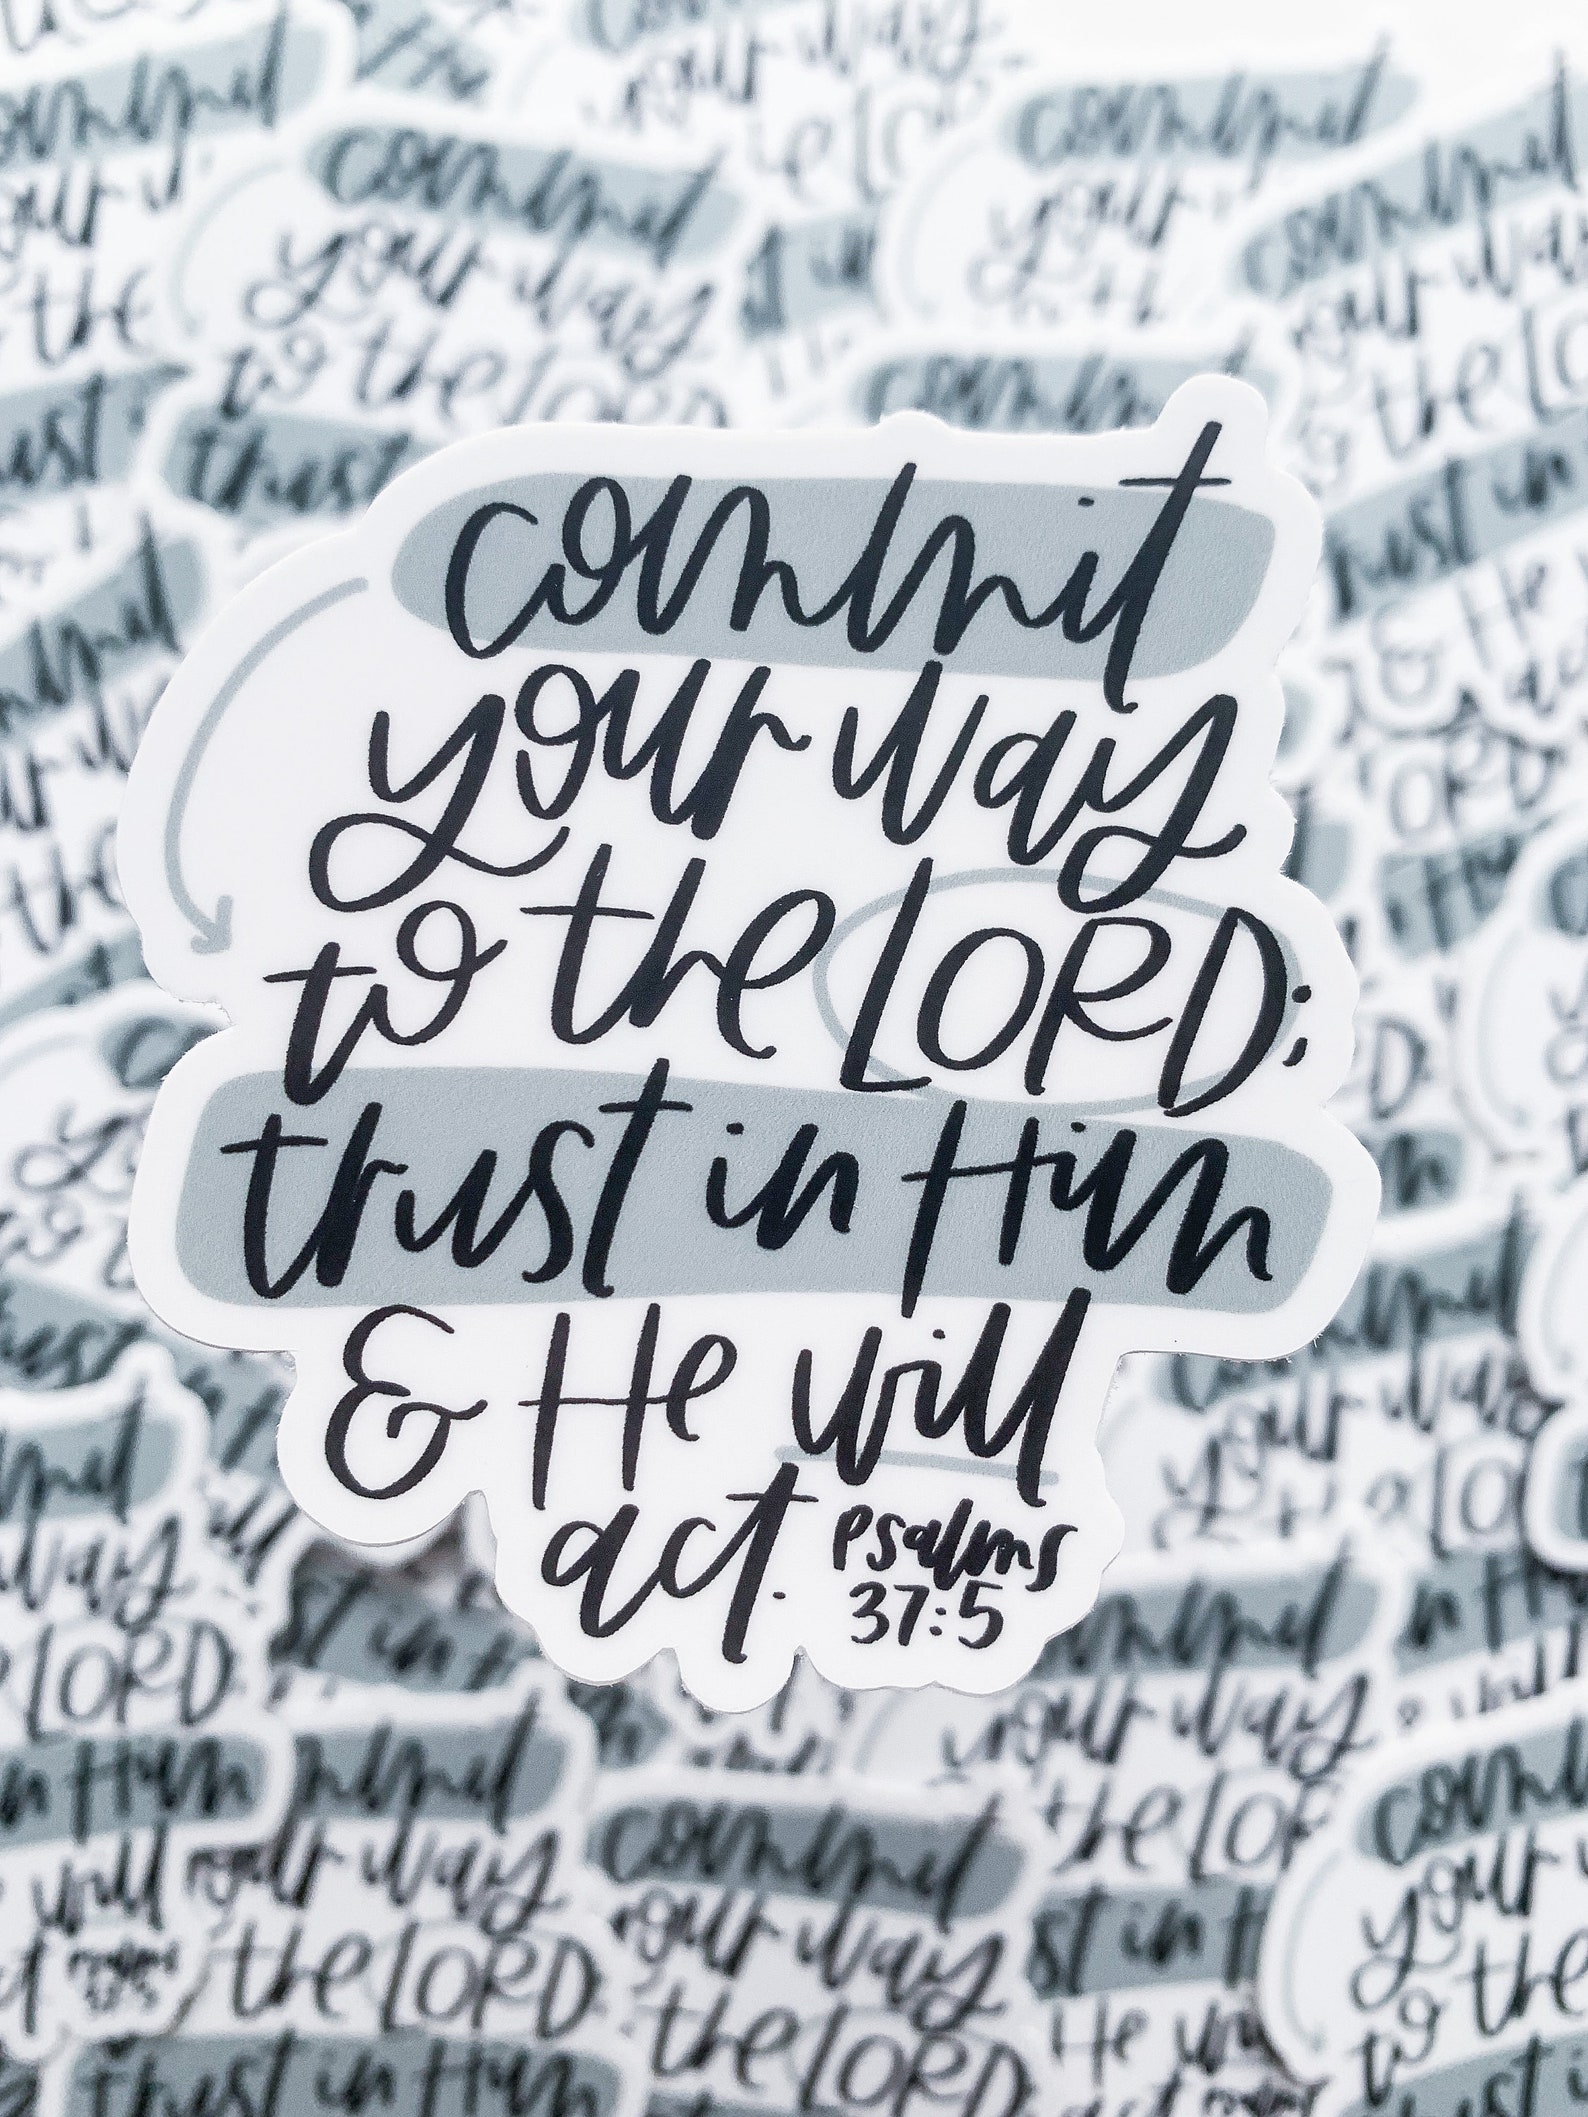 commit
your way
to the LORD;
trust in Him
& He will
act.
psalms
37:5